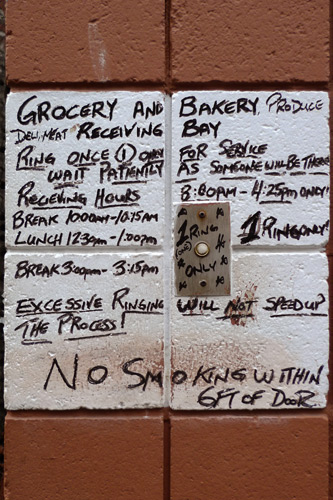 GROCERY AND BAKERY PRODUCE
DELI, MEAT RECEIVING BAY
RING ONCE (1) ONLY FOR SERVICE
WAIT PATIENTLY AS SOMEONE WILL BE THERE
RECEIVING HOURS 8:00AM - 4:25PM ONLY!
BREAK 10:00AM-10:15AM
LUNCH 12:30PM-1:00PM
1 RING
ONLY
1 RING ONLY!
BREAK 3:00PM- 3:15PM
EXCESSIVE RINGING WILL NOT SPEED UP
THE PROCESS!
NO SMOKING WITHIN
6FT OF DOOR